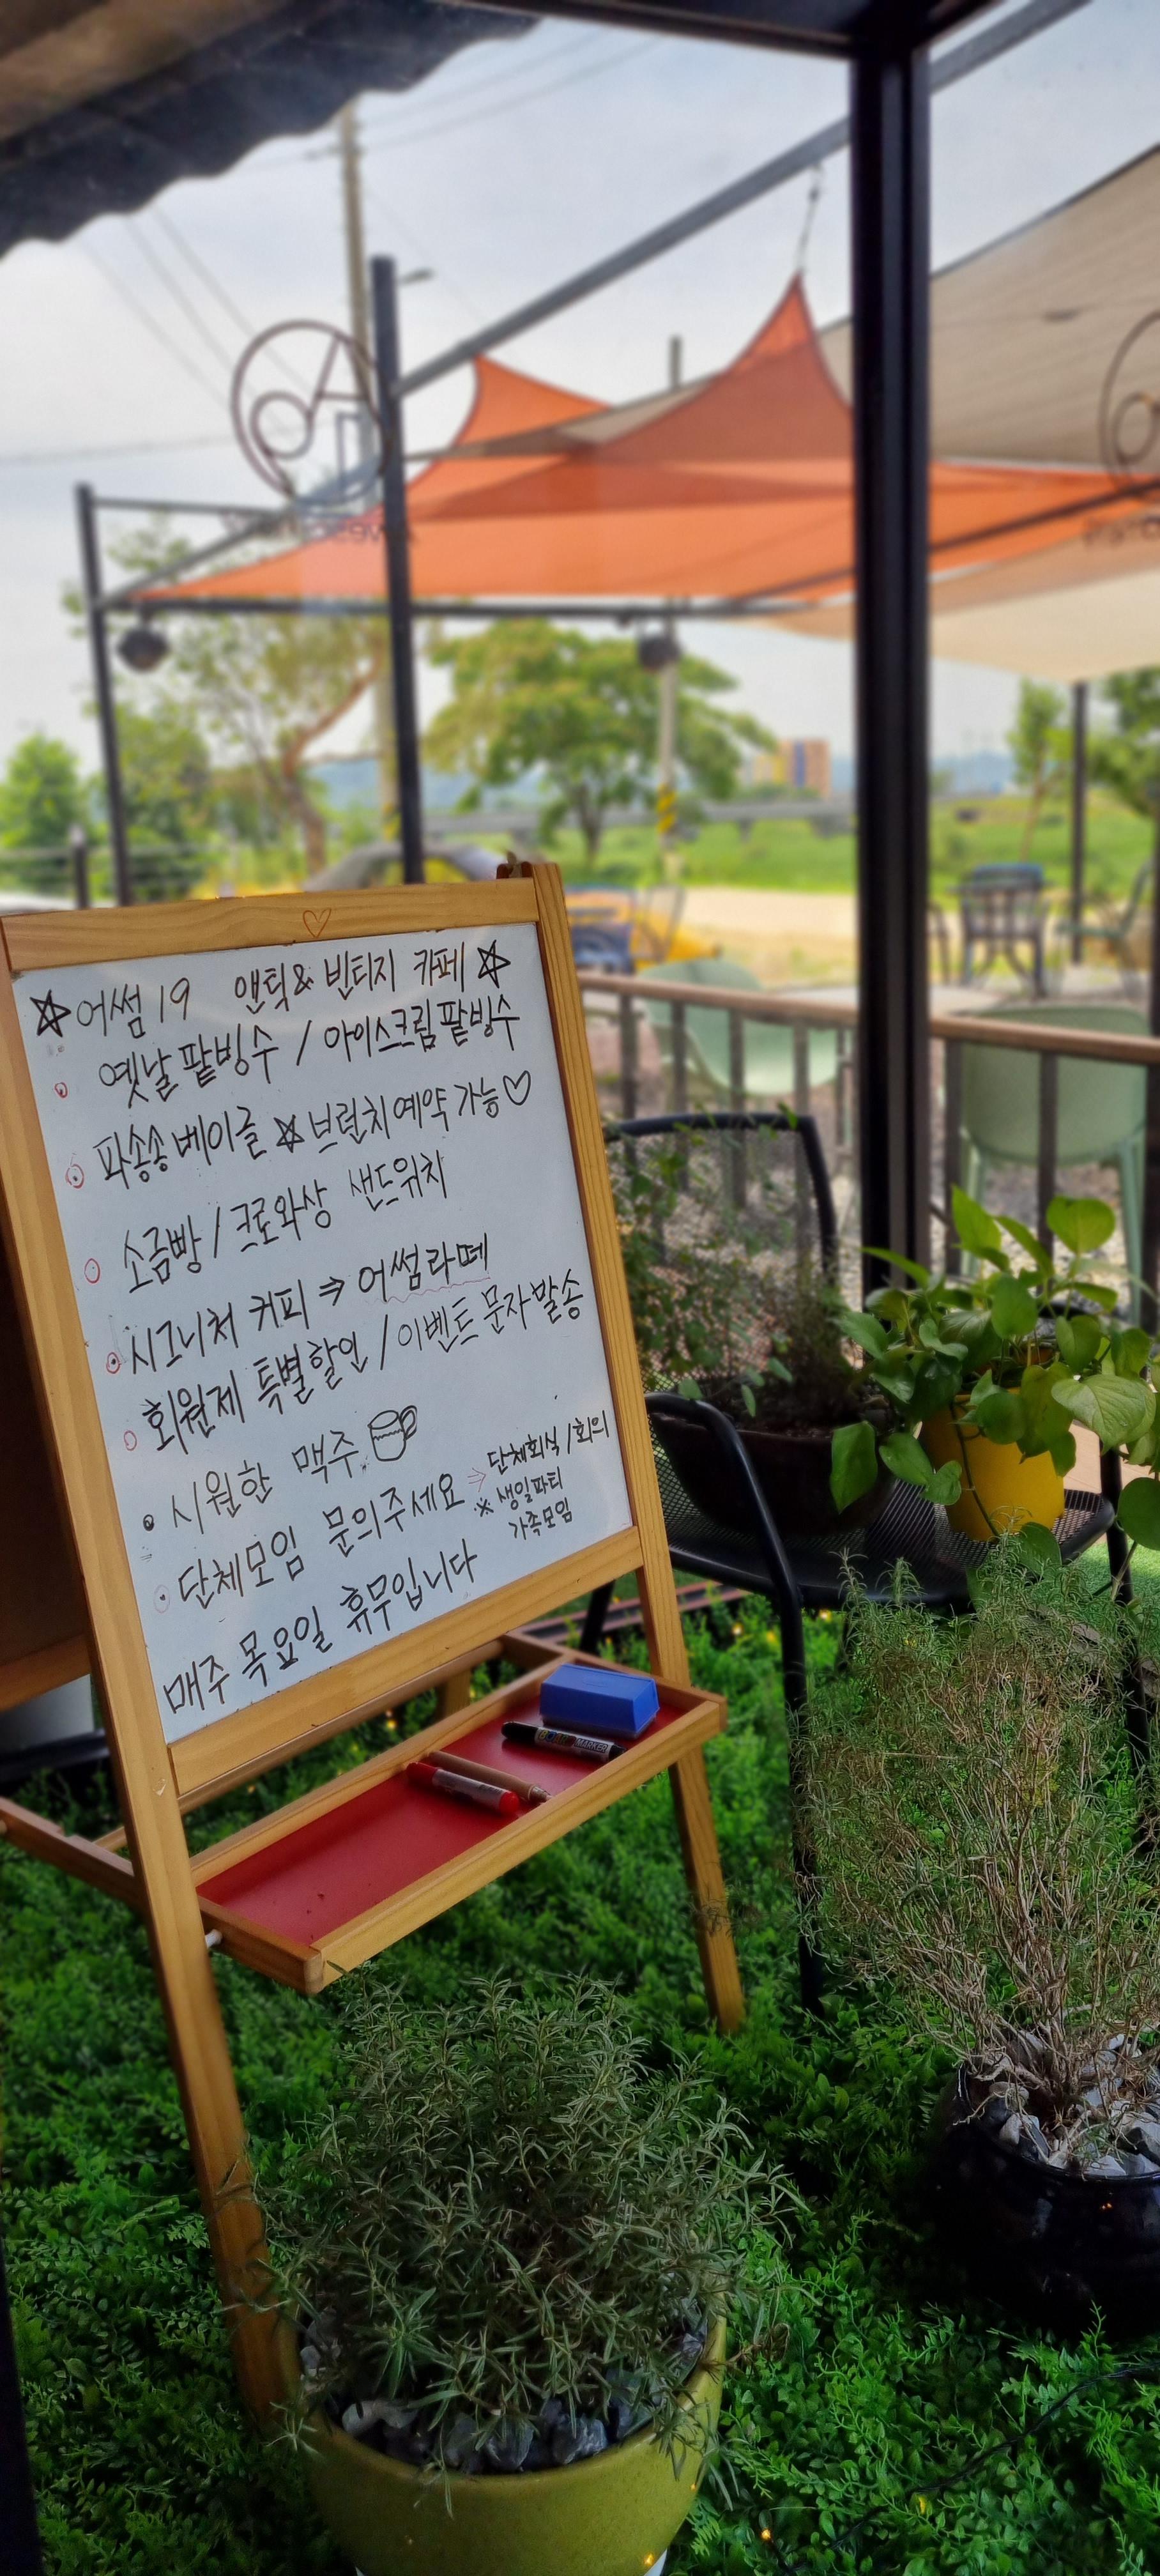 ☆ 어썸 19 앤틱 & 빈티지 카페 ☆
옛날 팥빙수 / 아이스크림 팥빙수
파송송 베이글 ☆ 브런치 예약 가능 ♡
소금빵 / 크로와상 샌드위치
시그니처 커피 ⇒ 어썸라떼
회원제 특별할인 / 이벤트 문자발송
시원한 맥주
단체모임 문의주세요 ⇒ 단체회식 / 회의
※ 생일파티
가족모임
매주 목요일 휴무입니다
BOARD MARKER